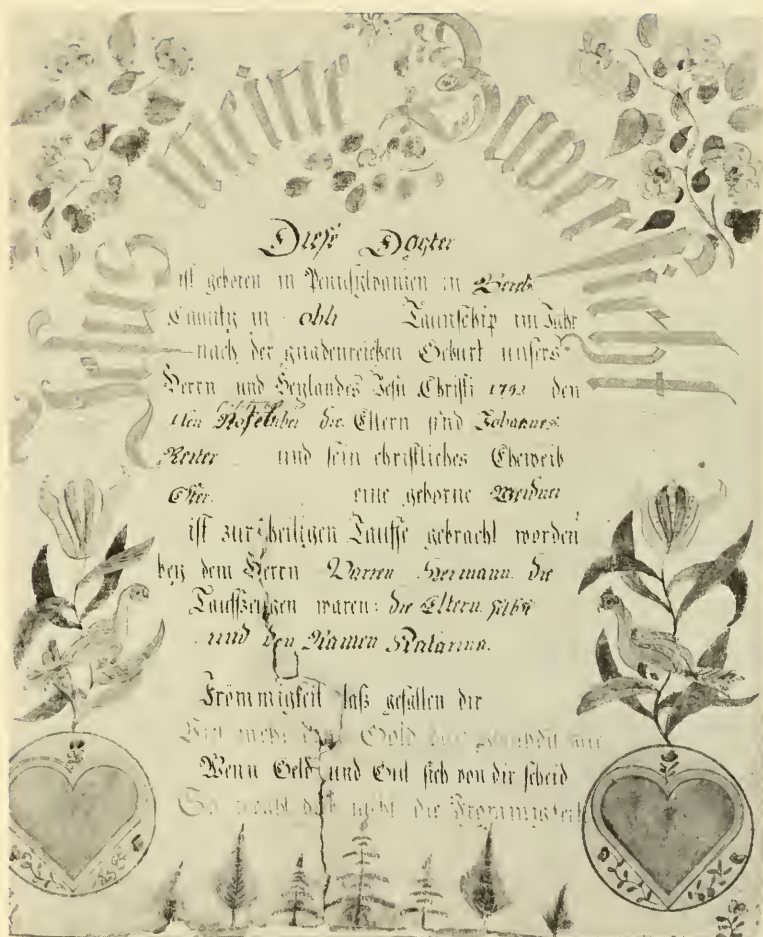 Jesus meine Zuversicht
Diese Dogter
ist geboren in Pennsylvanien in Berck
Caunty in ohli Taunschip im Jahr
nach der gnadenreichen Geburt unsers
Herrn und Heylandes Jesu Christi 179 den
ten die Eltern sind Johannes
Reiter und sein christliches Eheweib
Ester eine geborne Weidner
ist zur heiligen Tauffe gebracht worden
bey dem Herrn Hermann die
Tauffzeugen waren: die Eltern selbst
und den Namen Katarina.
Frömmigkeit laß gefallen dir
mehr Gold
Wenn Geld und Gut sich von dir scheid
So nicht die Frommigkeit